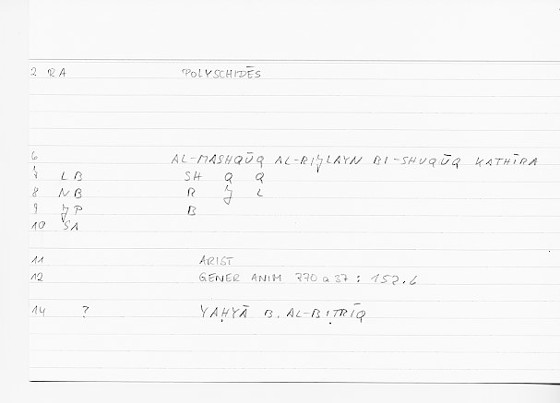 2 RA POLYSCHIDĒS
6 AL-MASHQŪQ AL-RIǧLAYN BI-SHUQŪQ KATHĪRA
7 LB SH Q Q
8 NB R ǧ L
9 ǧP B
10 SA
11 ARIST
12 GENER ANIM 770 a 37 : 152.6
14 ? YAḤYĀ B. AL-BIṬRĪQ